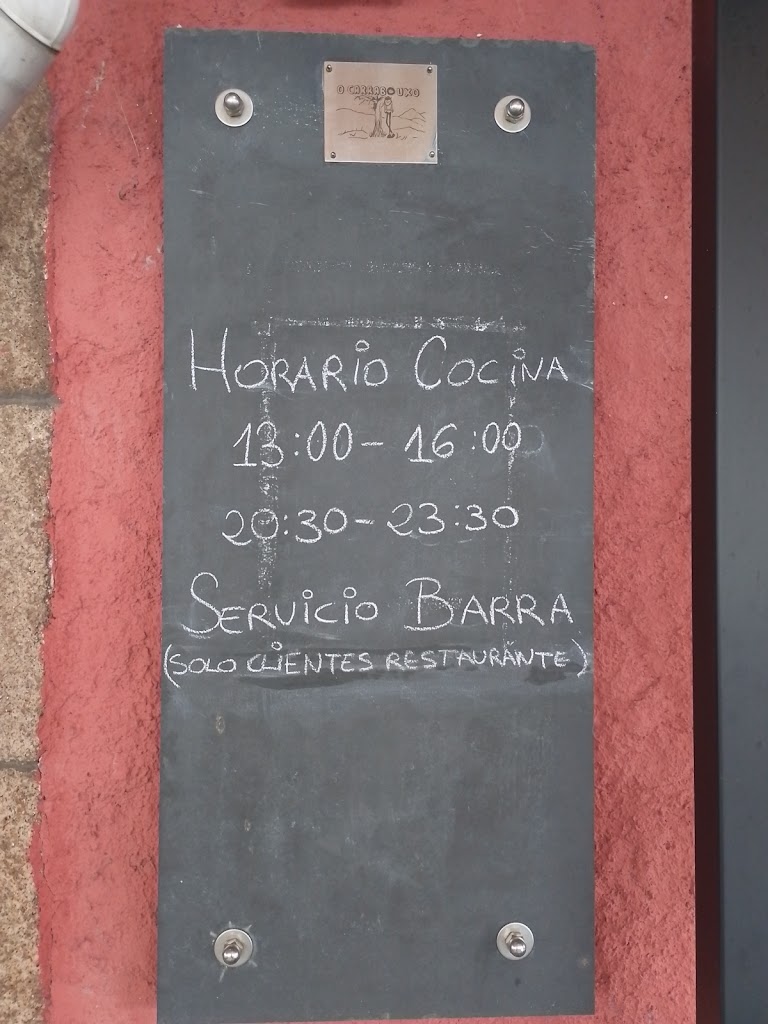 O CARRABOUXO
HORARIO COCINA
13:00 - 16:00
20:30 - 23:30
SERVICIO BARRA
(SOLO CLIENTES RESTAURANTE)